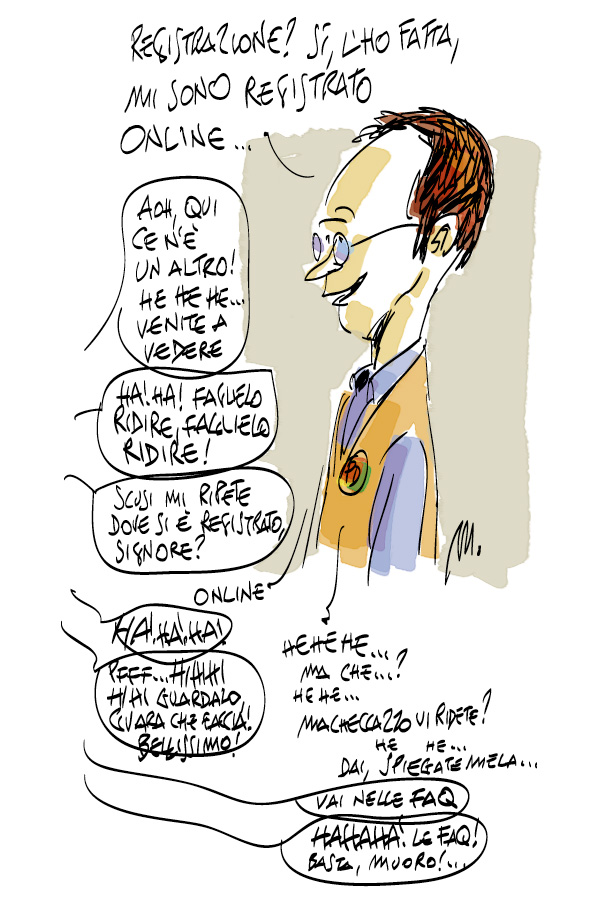 REGISTRAZIONE? SÌ, L'HO FATTA,
MI SONO REGISTRATO
ONLINE...
AOH, QUI
CE N'È
UN ALTRO!
HE HE HE...
VENITE A
VEDERE
HA! HA! FAGLIELO
RIDIRE, FAGLIELO
RIDIRE!
SCUSI MI RIPETE
DOVE SI È REGISTRATO,
SIGNORE?
ONLINE
HA! HA! HA!
PFFF... HIHIHI
HIHI GUARDALO
GUARA CHE FACCIA!
BELLISSIMO!
HEHEHE...
MA CHE...?
HE HE...
MACHECCAZZO VI RIDETE?
HE HE...
DAI, SPIEGATEMELA...
VAI NELLE FAQ
HAHAHA! LE FAQ!
BASTA, MUORO!...
PD
M.